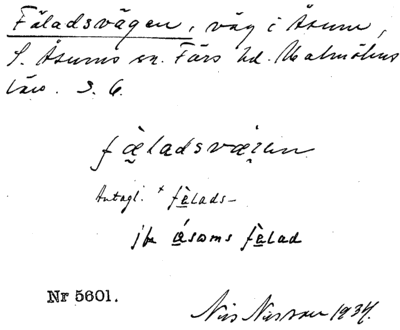 Fäladsvägen, väg i Åsum,
S. Åsums sn. Färs hd. Malmöhus
län. 3. 6.
fæladsværen
Antagl. + fèlads-
jfr ásoms fèlad
Nr 5601.
Nils Nilsson 1934.